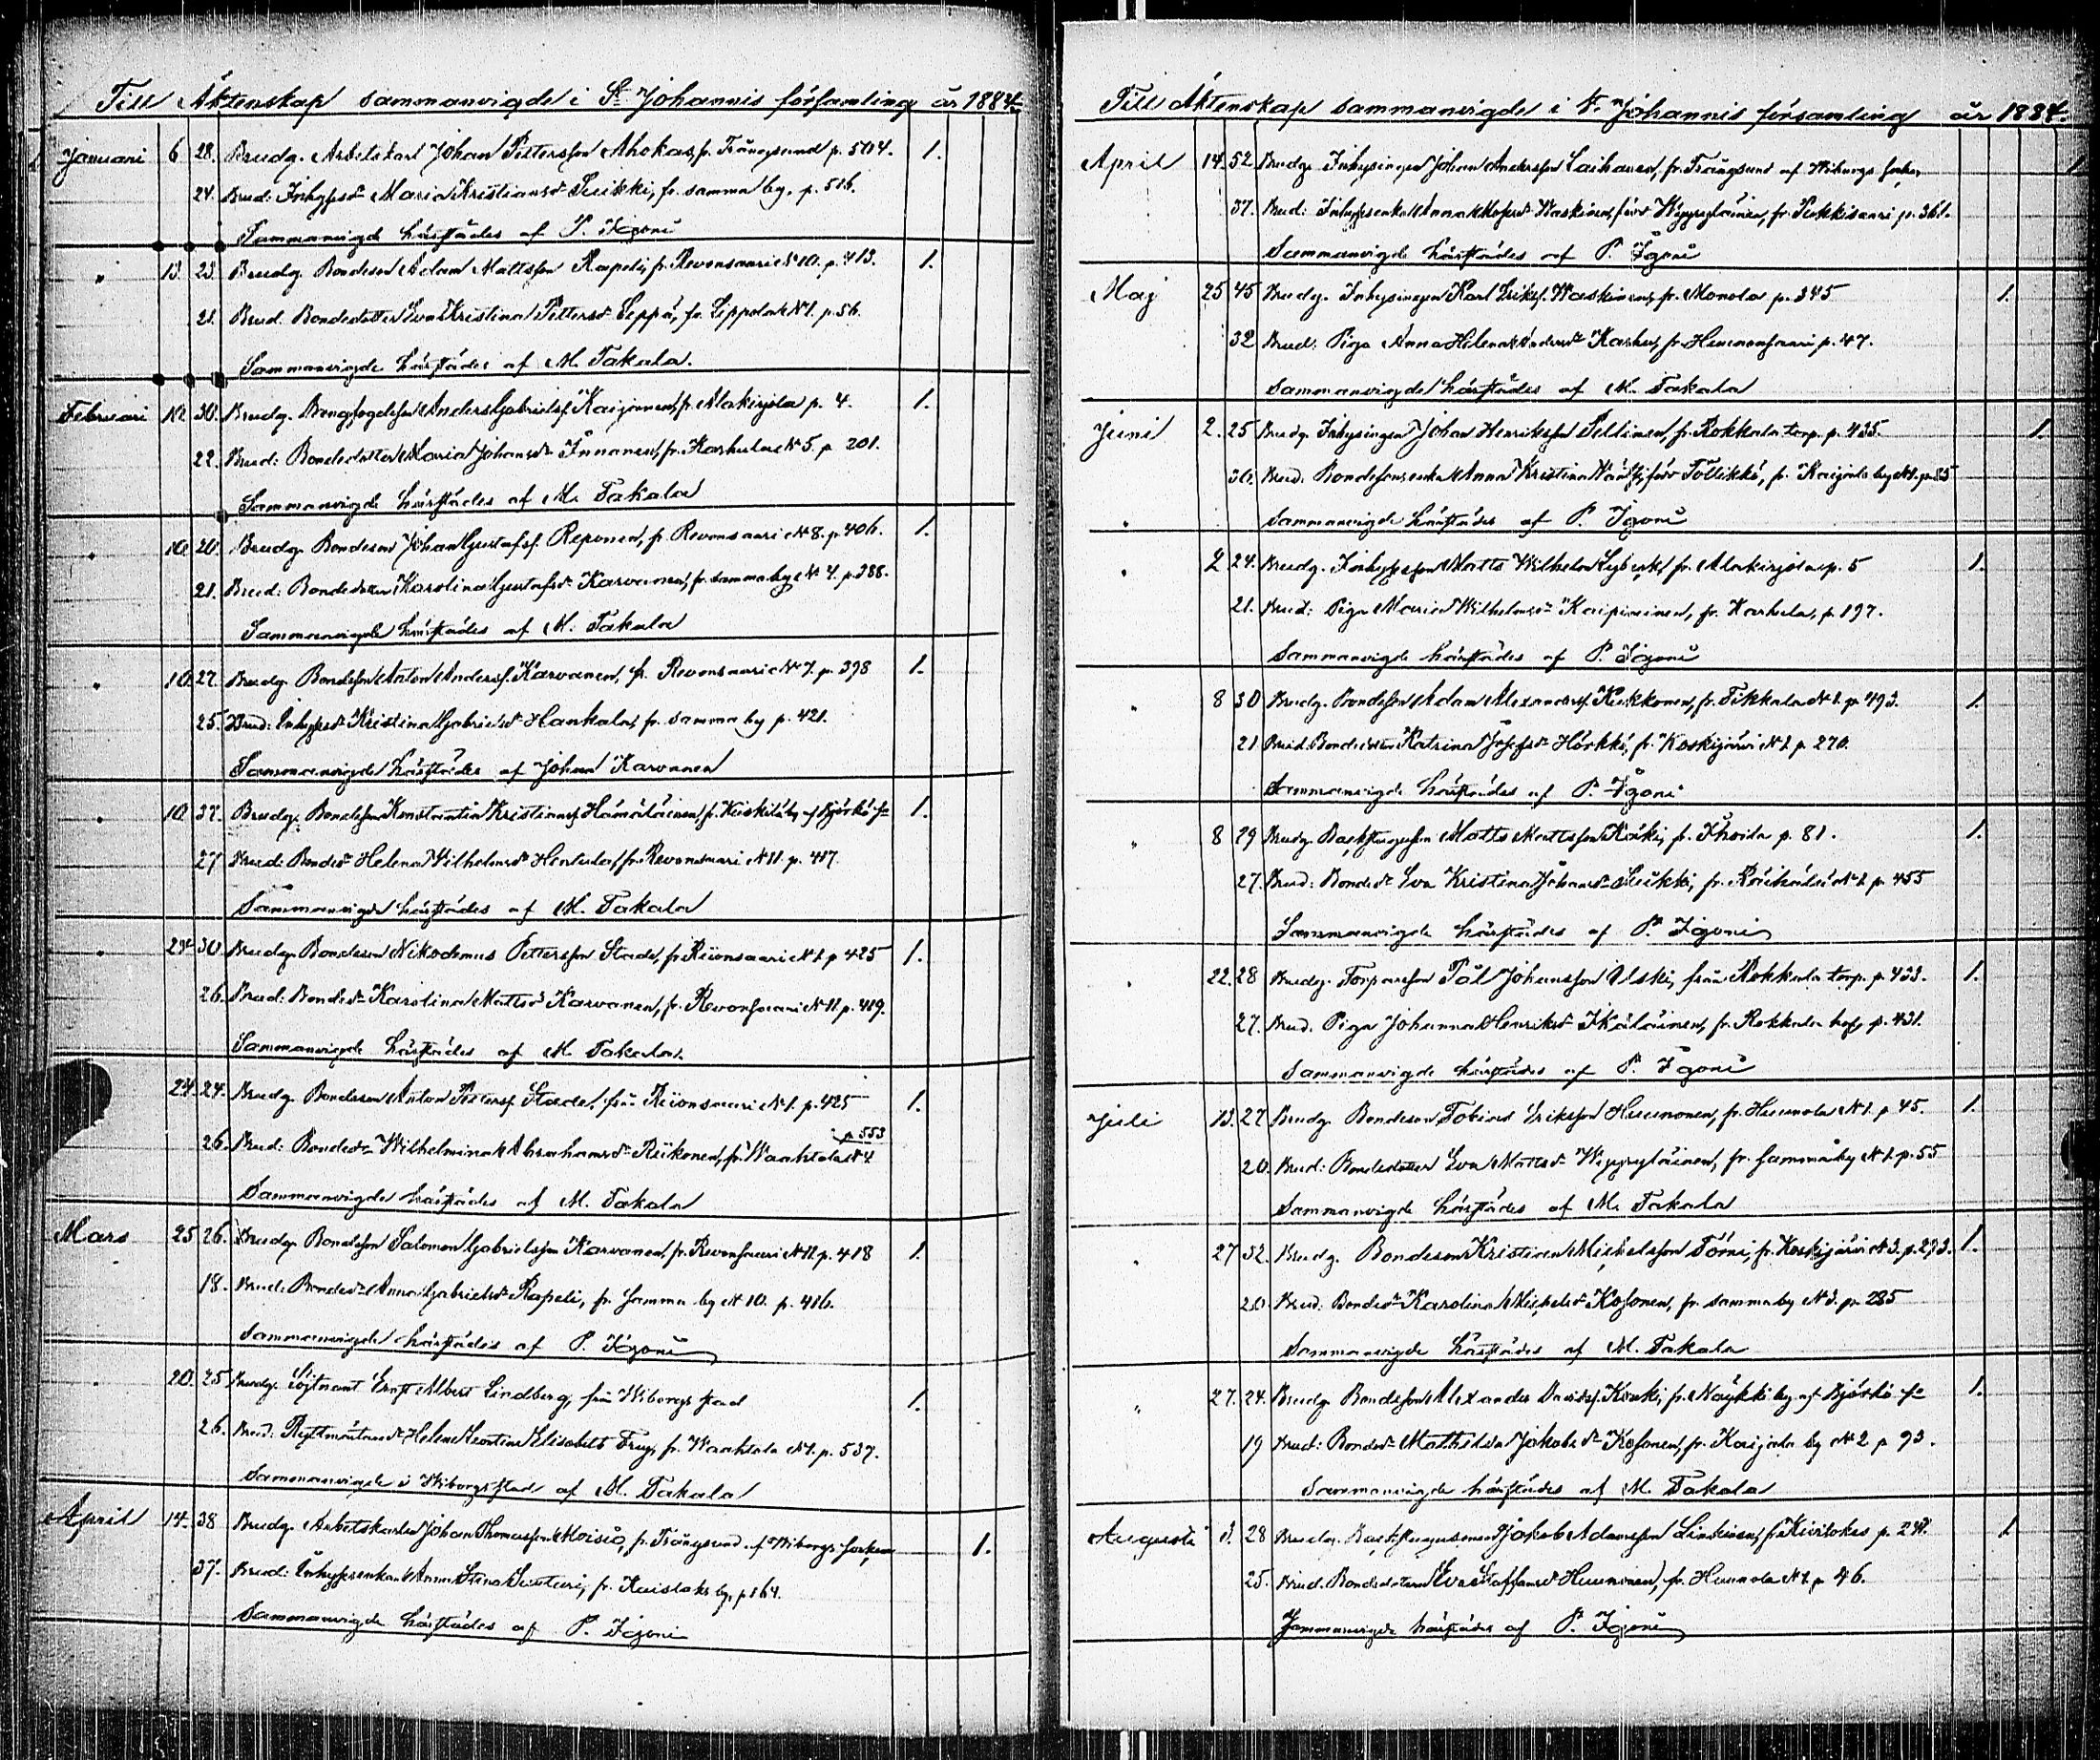 Till Äktenskap sammanvigde i St Johannis församling år 1884.
Januari 6 28. Brudg. Arbetskarl Johan Pettersson Ahokas, fr. Trångsund p. 504. 1.
24. Brud: Inhysesdr Maria Kristiansdr Peikki, fr. samma by. p. 516.
Sammanvigde härstädes af P. Igoni
" 13. 23. Brudg. Bondeson Adam Mattsson Rapeli, fr. Revonsaari № 10. p. 413. 1.
21. Brud. Bondedotter Eva Kristina Pettersdr Seppä, fr. Seppola № 1. p. 56.
Sammanvigde härstädes af M. Takala.
Februari 10. 30. Brudg. Anders Gabrielsf. Kaijonen, fr. Alakirjola p. 4. 1.
22. Brud: Bondedotter Maria Johansdr Innanen, fr. Karhula № 5. p. 201.
Sammanvigde härstädes af M. Takala
" 10. 20. Brudg. Bondeson Johan Gustafsf. Reponen, fr. Revonsaari № 8. p. 406. 1.
21. Brud: Bondedotter Karolina Gustafsdr Karvanen, fr. samma by № 4. p. 388.
Sammanvigde härstädes af M. Takala
" 10. 27. Brudg. Bondeson Anton Andersf. Karvanen, fr. Revonsaari № 7. p. 398 1.
25. Brud: Inhysesdr Kristina Gabrielsdr Hankala, fr. samma by p. 421.
Sammanvigde härstädes af Johan Karvanen
" 10. 37. Brudg. Bondeson Konstantin Kristiansf. Hämäläinen, fr. by af Björkö fg 1.
27 Brud: Bondedr Helena Wilhelmsdr fr. Revonsaari № 11. p. 417.
Sammanvigde härstädes af M. Takala
" 24. 30. Brudg. Bondeson Nikodemus Pettersson Stade, fr. Riionsaari № 1. p. 425 1.
26. Brud: Bondedr Karolina Mattsdr Karvanen, fr. Revonsaari № 11. p. 419.
Sammanvigde härstädes af M. Takala.
24. 24. Brudg. Bondeson Anton Pettersf. Stade, från Riionsaari № 1. p. 425 1.
p. 553
26. Brud: Bondedr Wilhelmina Abrahamsdr Riikonen, fr. Waahtola № 4
Sammanvigde härstädes af M. Takala
Mars 25 26. Brudg. Bondeson Salomon Gabrielsson Karvanen, fr. Revonsaari № 11. p. 418 1.
18. Brud: Bondedr Anna Gabrielsdr Rapeli, fr. samma by № 10. p. 416.
Sammanvigde härstädes af P. Igoni
20. 25 Brudg. Löjtnant Ernst Albert Lindberg, från Wiborgs stad 1.
26. Brud: Helena Leontina Elisabeth Frey, fr. Waahtola № 1. p. 537.
Sammanvigde i Wiborgs stad af M. Takala
April 14. 38 Brudg. Arbetskarlen Johan Thomasson Moisio, fr. Trångsund af Wiborgs 1.
37. Brud: Inhysesenkan Anna Stina fr. Kuislaks by, p. 164.
Sammanvigde härstädes af P. Igoni
Till Äktenskap sammanvigde i St. Johannis församling år 1884.
April 14. 52 Brudg. Inhysingen Johan Andersson Laihanen, fr. Trångsund af Wiborgs 1
37. Brud: Inhysesenkan Anna Waskinen, född Wepsäläinen, fr. Pukkisaari p. 361.
Sammanvigde härstädes af P. Igoni
Maj 25 45 Brudg. Inhysingen Karl Eriksf. Waskinen, fr. Monola p. 345 1.
32 Brud: Piga Anna Helena Andersdr Karhu, fr. p. 47.
Sammanvigde härstädes af M. Takala
Juni 2. 25 Brudg. Inhysingen Johan Henriksson Pellinen, fr. Rokkala torp. p. 435. 1.
36. Brud: Bondesonsenka Anna Kristina född Töllikkö, fr. Kaijala by № 1. p. 85
Sammanvigde härstädes af P. Igoni
" 2 24. Brudg. Inhysesson Matts Wilhelm fr. Alakirjola p. 5 1.
21. Brud: Piga Maria Wilhelmsdr Kaipiainen, fr. Karhula, p. 197.
Sammanvigde härstädes af P. Igoni
" 8 30 Brudg. Bondeson Adam Alexandersf. Kiekkonen, fr. Tikkala № 1. p. 493. 1.
21 Brud: Bondedotter Katrina Josefsdr Hörkkö, fr. Koskijärvi № 1. p. 270.
Sammanvigde härstädes af P. Igoni
" 8 29 Brudg. Matts Mattsson Käki, fr. Ihoila p. 81. 1.
27. Brud: Bondedr Eva Kristina Johansdr Peikki, fr. Räihälä № 2 p. 455
Sammanvigde härstädes af P. Igoni
" 22. 28 Brudg. Torpareson Pål Johansson Ulski, från Rokkala torp. p. 433. 1.
27. Brud. Piga Johanna Henriksdr Ikäläinen, fr. Rokkala hof, p. 431.
Sammanvigde härstädes af P. Igoni
Juli 13. 27 Brudg. Bondeson Tobias Eriksson Huunonen, fr. Huunola № 1. p. 45. 1.
20. Brud: Bondedotter Eva Mattsdr Wepsäläinen, fr. samma by № 1. p. 55
Sammanvigde härstädes af M. Takala
" 27 32. Brudg. Bondeson Kristian Mickelsson Törni, fr. Koskijärvi № 3. p. 293. 1.
20. Brud: Bondedr Karolina Mickelsdr Kosonen, fr. samma by № 3. p. 285
Sammanvigde härstädes af M. Takala
" 27. 24. Brudg. Bondeson Alexander Davidsf. Koski, fr. by af Björkö fg 1.
19 Brud: Bondedr Mathilda Jakobsdr Kosonen, fr. Kaijala by № 2 p. 93.
Sammanvigde härstädes af M. Takala
Augusti 3. 28 Brudg. Jakob Adamsson Linkinen, fr. Kirstokas p. 241. 1
25. Brud. Bondedotter Eva Staffansdr Huunonen, fr. Huunola № 1 p. 46.
Sammanvigde härstädes af P. Igoni